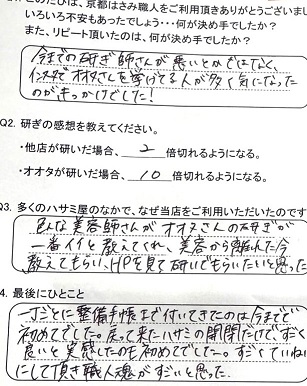 このたびは、京都はさみ職人をご利用頂きありがとうございまし
いろいろ不安もあったでしょう・・・何が決め手でしたか？
また、リピート頂いたのは、何が決め手でしたか？
今までの研ぎ師さんが悪いとかではなく、
インスタでオオタさんを挙げてる人が多く気になった
のがきっかけでした！
Q2. 研ぎの感想を教えてください。
・他店が研いだ場合、2倍切れるようになる。
・オオタが研いだ場合、10倍切れるようになる。
Q3. 多くのハサミ屋のなかで、なぜ当店をご利用いただいたのです
色んな美容師さんがオオタさんの研ぎが
一番イイと教えてくれ、美容から離れた今
教えてもらい、HPを見て研いでもらいたいと思った
4. 最後にひとこと
一丁ごとに整備手帳まで付いてきたのは今までで
初めてでした。戻って来たハサミの開閉だけで、すぐ
良いと実感したのも初めてでした。すごくていねい
にして頂き職人魂がすごいと思った。